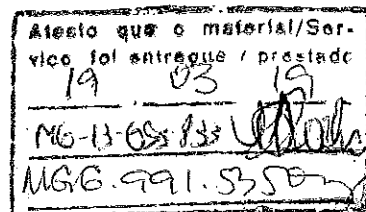 Atesto que o material/Ser-
viço foi entregue / prestado
19 03 19
MG-13-655-833
MG6.991.535